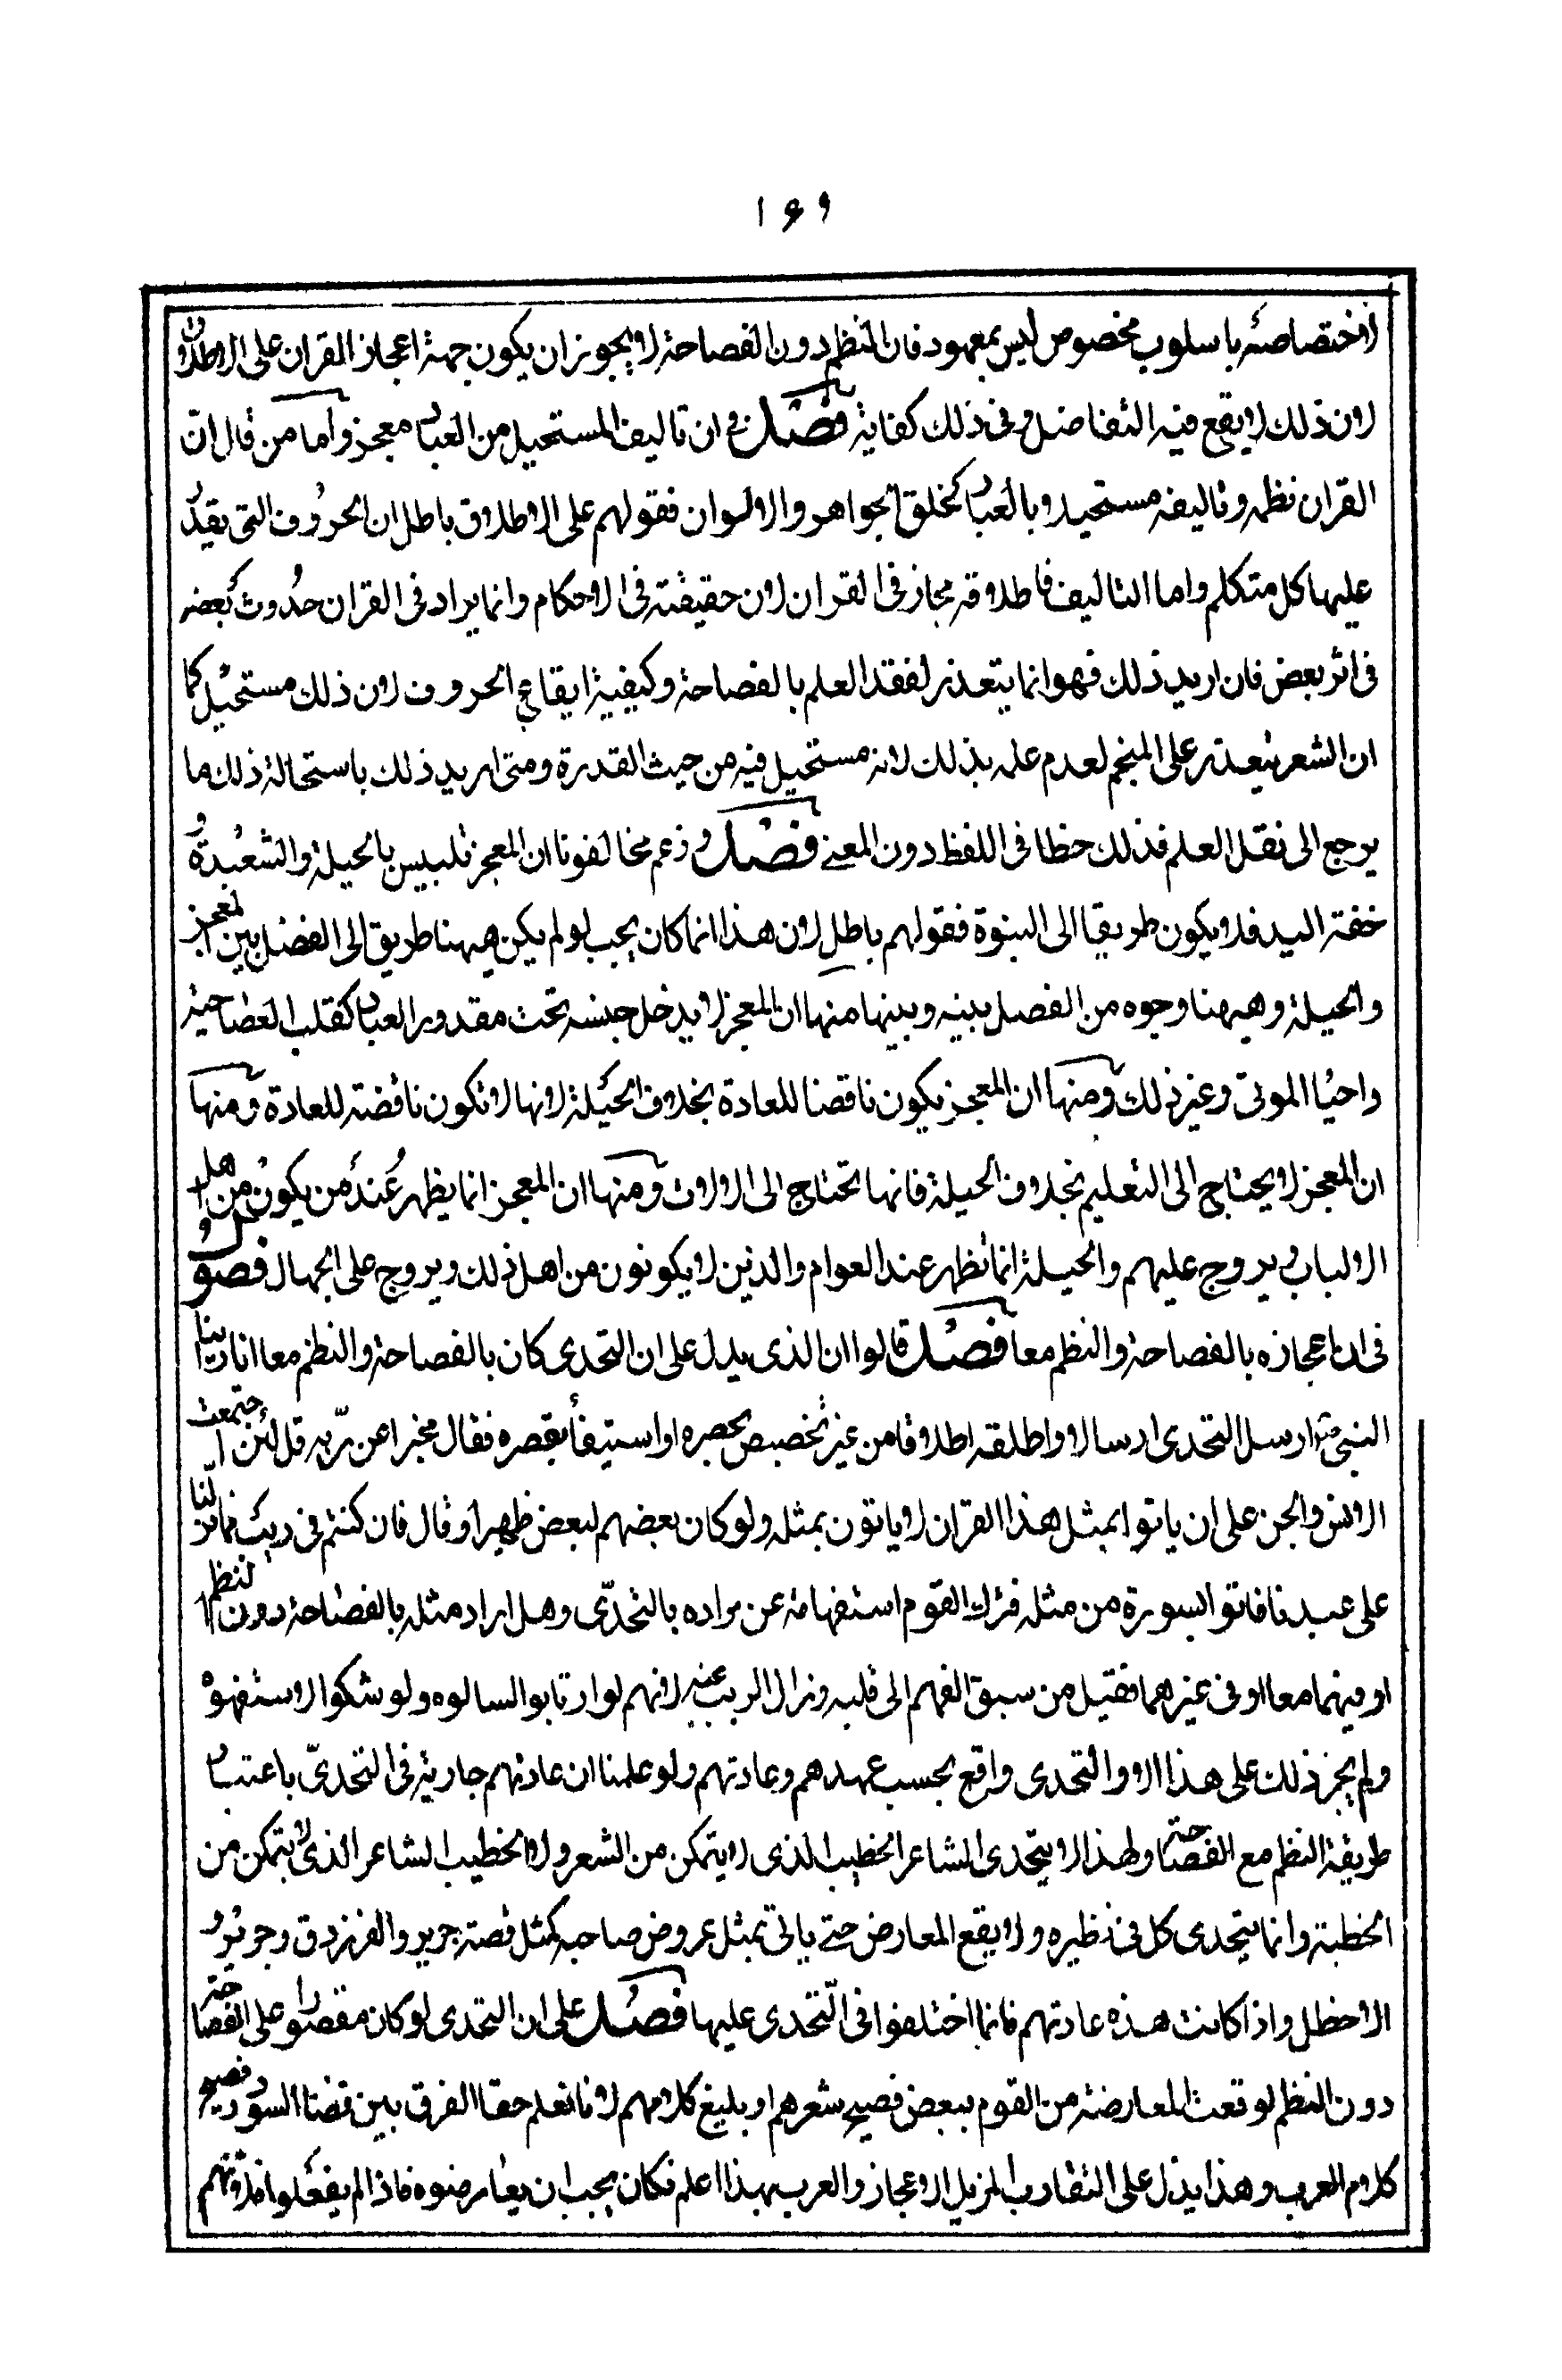 ۱۶۹
لاختصاصه باسلوب مخصوص ليس بمعهود فان النظم دون الفصاحة لا يجوز ان يكون جهة اعجاز القران على الاطلاق
لان ذلك لا يقع فيه التفاضل وفى ذلك كفاية فصل فى ان تاليف المستحيل من العباد معجز واما من قال ان
القران نظمه وتاليفه مستحيل من العباد كخلق الجواهر والالوان فقولهم على الاطلاق باطل لان الحروف التى يقدر
عليها كل متكلم واما التاليف فاطلاقه مجاز فى القران لان حقيقته فى الاحكام وانما يراد فى القران حدوث بعضه
فى اثر بعض فان اريد ذلك فهو انما يتعذر لفقد العلم بالفصاحة وكيفية ايقاع الحروف لان ذلك مستحيل كما
ان الشعر يتعذر على المنجم لعدم علمه بذلك لانه مستحيل فيه من حيث القدرة ومتى اريد ذلك باستحالة ذلك ما
يرجع الى نقل العلم فذلك خطا فى اللفظ دون المعنى فصل وزعم مخالفونا ان المعجز تلبيس بالحيلة والشعبدة و
خفة اليد فلا يكون طريقا الى النبوة فقولهم باطل لان هذا انما كان يجب لو لم يكن هيهنا طريق الى الفصل بين المعجز
والحيلة وهيهنا وجوه من الفصل بينه وبينها منها ان المعجز لا يدخل جنسه تحت مقدور العباد كقلب العصا حية
واحيا الموتى وغير ذلك ومنها ان المعجز يكون ناقضا للعادة بخلاف الحيلة لانها لا تكون ناقضة للعادة ومنها
ان المعجز لا يحتاج الى التعليم بخلاف الحيلة فانها تحتاج الى الالات ومنها ان المعجز انما يظهر عند من يكون من اهل
الالباب ويروج عليهم والحيلة انما تظهر عند العوام والذين لا يكونون من اهل ذلك ويروج على الجهال فصول
فى ان اعجازه بالفصاحة والنظم معا فصل قالوا ان الذى يدل على ان التحدى كان بالفصاحة والنظم معا انا راينا
النبى ص ارسل التحدى ارسالا واطلقه اطلاقا من غير تخصيص يحصره او استيفأ يقصره فقال مخبرا عن ربه قل لئن اجتمعت
الانس والجن على ان ياتوا بمثل هذا القران لا ياتون بمثله ولو كان بعضهم لبعض ظهيرا وقال فان كنتم فى ريب مما نزلنا
على عبدنا فاتوا بسورة من مثله فترك القوم استفهامه عن مراده بالتحدى وهل اراد مثله بالفصاحة دون النظم
او فيهما معا او فى غيرهما فقيل من سبق الفهم الى قلبه وزال الريب عنه لانهم لو ارتابوا لسالوه ولو شكوا لاستفهموه
ولم يجز ذلك على هذا الا والتحدى واقع بحسب عهدهم وعادتهم ولو علمنا ان عادتهم جارية فى التحدى باعتبار
طريقة النظم مع الفصاحة ولهذا لا يتحدى الشاعر الخطيب الذى لا يتمكن من الشعر ولا الخطيب الشاعر الذى لا يتمكن من
الخطبة وانما يتحدى كل فى نظيره ولا يقع المعارض حتى ياتى بمثل عروض صاحبه كمثل قصة جرير والفرزدق وجرير و
الاخطل واذا كانت هذه عادتهم فانما اختلفوا فى التحدى عليها فصل على ان التحدى لو كان مقصورا على الفصاحة
دون النظم لوقعت المعارضة من القوم ببعض فصيح شعرهم او بليغ كلامهم لانا نعلم حقا الفرق بين قضا السور وفصيح
كلام العرب وهذا يدل على التقارب المزيل الاعجاز والعرب بهذا اعلم فكان يجب ان يعارضوه فاذا لم يفعلوا فلانهم